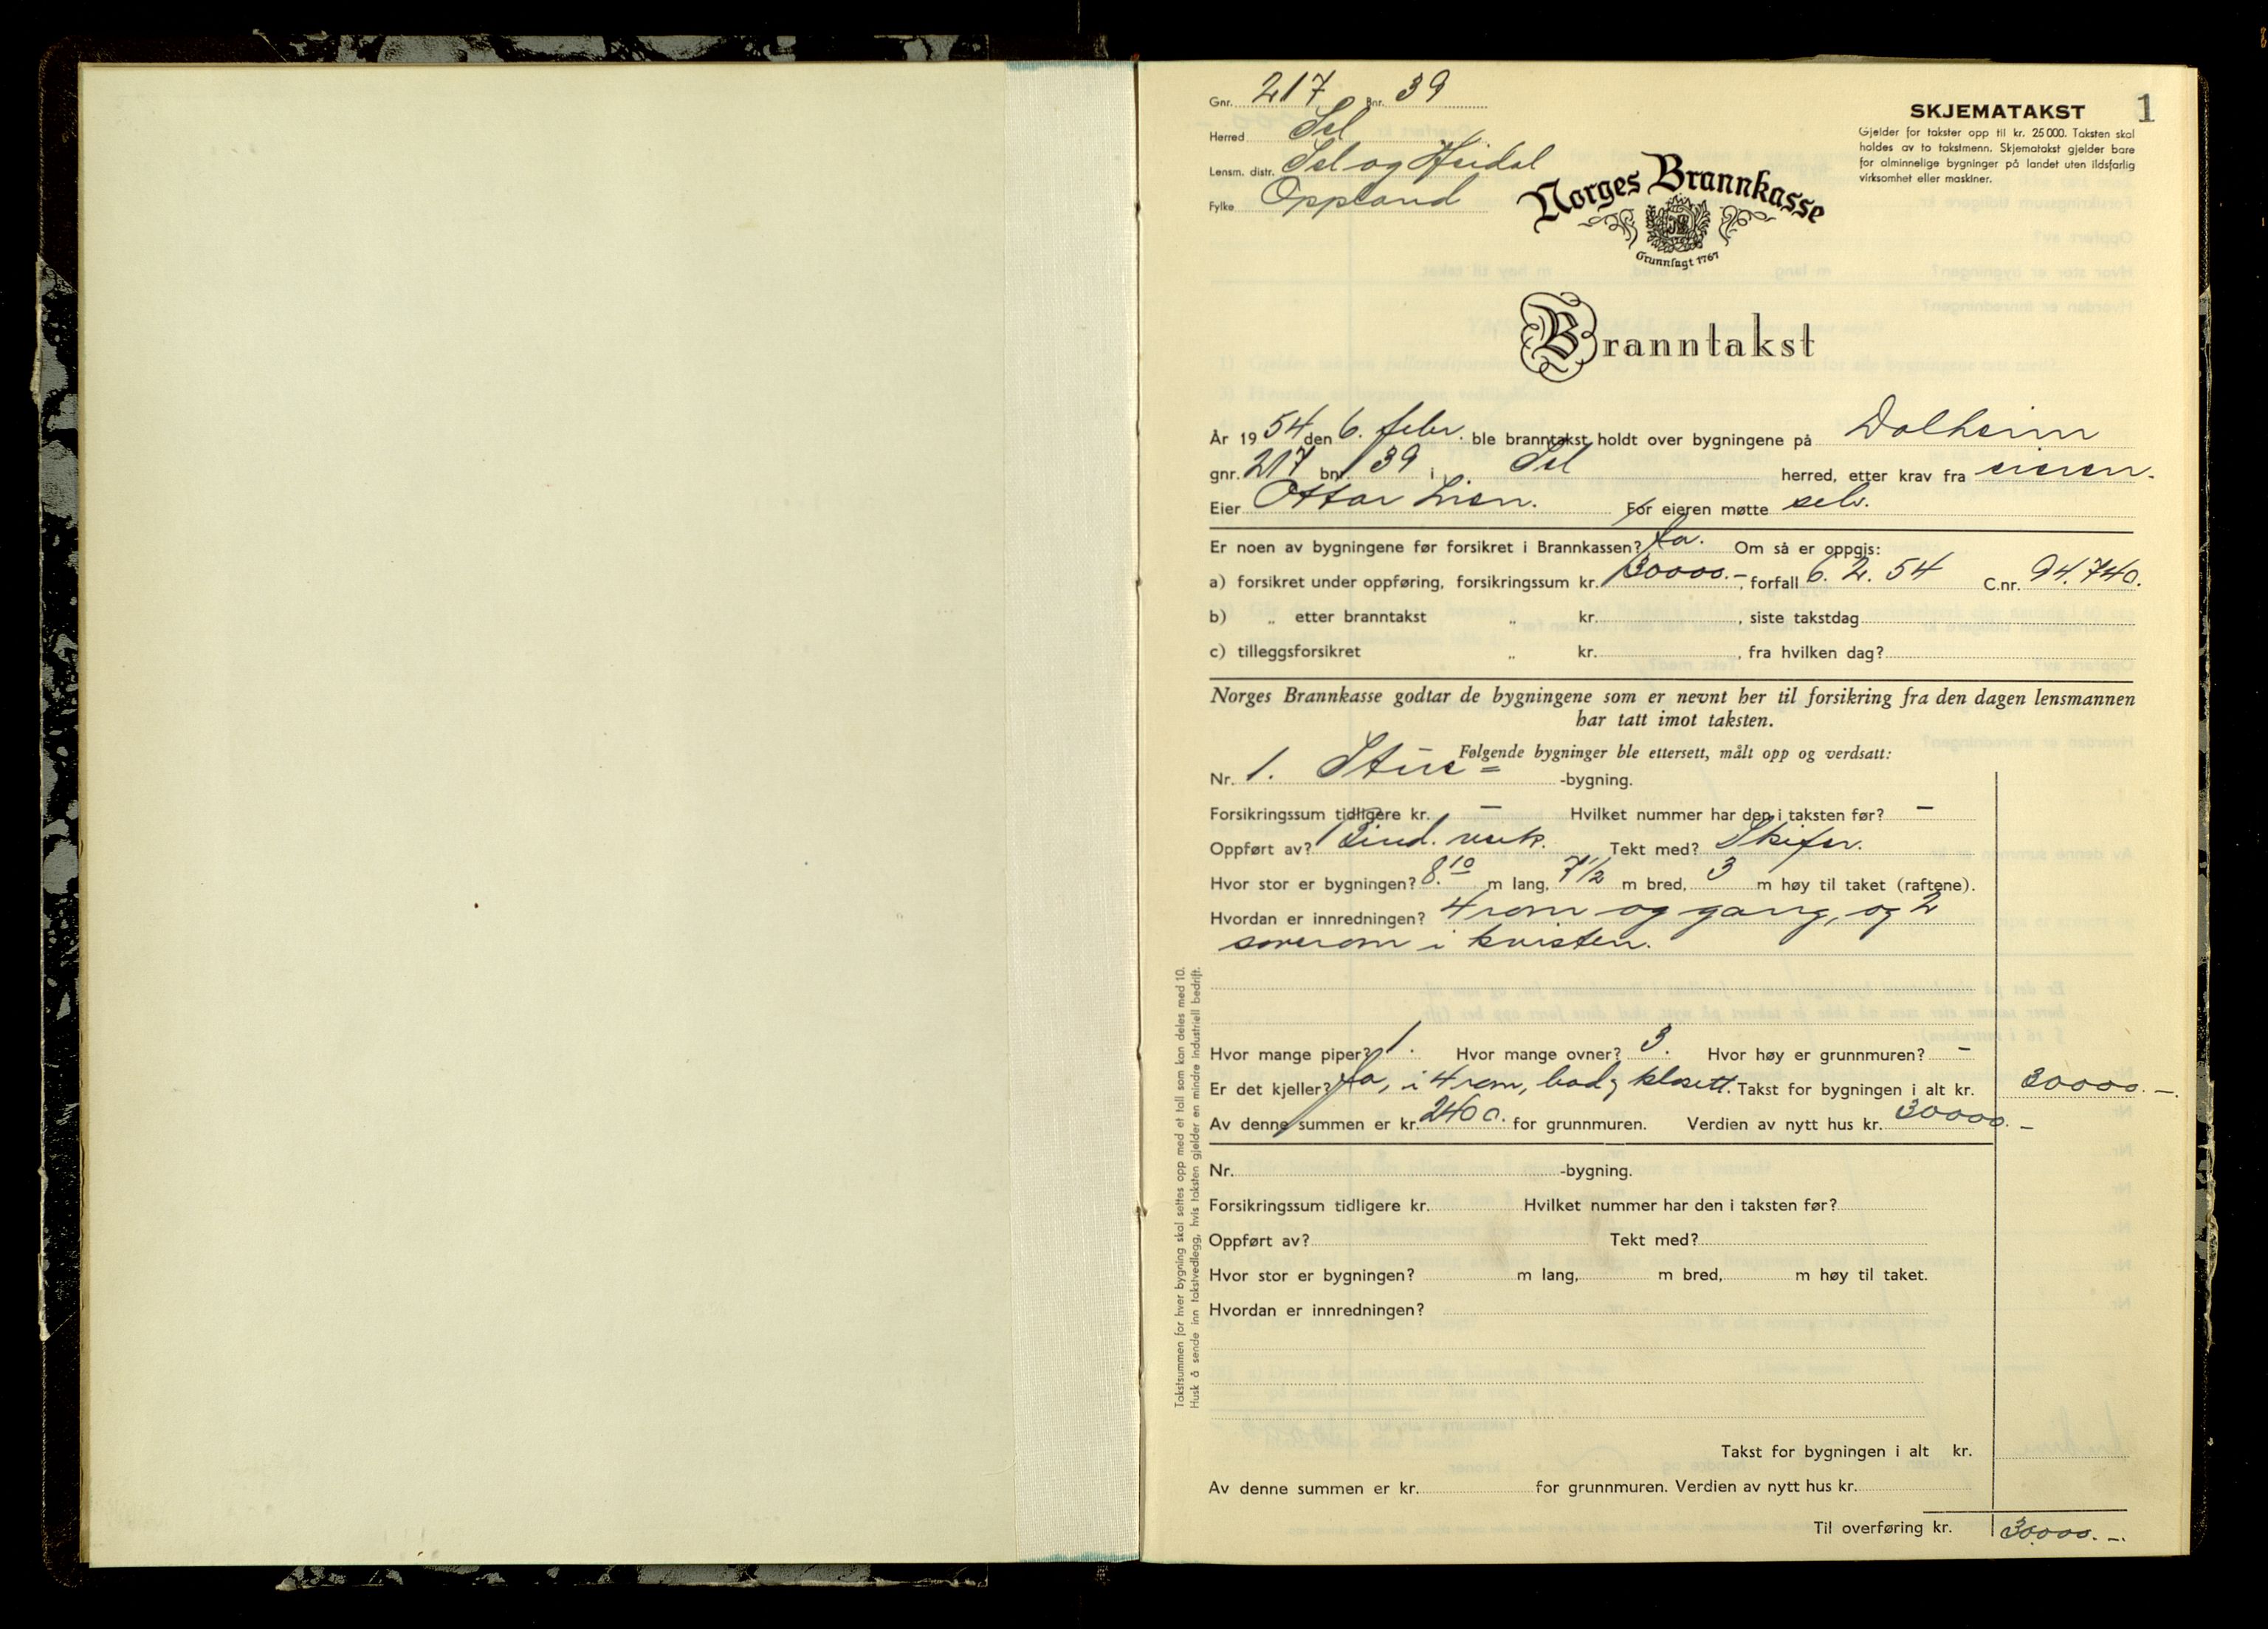 Gnr. 217 Bnr. 39
Herred Sel
Lensm. distr. Sel og Heidal
Fylke Oppland
SKJEMATAKST 1
Gjelder for takster opp til kr. 25 000. Taksten skal
holdes av to takstmenn. Skjematakst gjelder bare
for alminnelige bygninger på landet uten ildsfarlig
virksomhet eller maskiner.
Norges Brannkasse
Grunnlagt 1767
Branntakst
År 1954 den 6. febr. ble branntakst holdt over bygningene på Dalheim
gnr. 217 bnr. 39 i Sel herred, etter krav fra eieren.
Eier Ottar Lien. For eieren møtte selv.
Er noen av bygningene før forsikret i Brannkassen? Ja. Om så er oppgis:
a) forsikret under oppføring, forsikringssum kr. 30000.-, forfall 6. 2. 54 C.nr. 94.740.
b) „ etter branntakst „ kr. , siste takstdag
c) tilleggsforsikret „ kr. , fra hvilken dag?
Norges Brannkasse godtar de bygningene som er nevnt her til forsikring fra den dagen lensmannen
har tatt imot taksten.
Følgende bygninger ble ettersett, målt opp og verdsatt:
Nr. 1. Stue= -bygning.
Forsikringssum tidligere kr. — Hvilket nummer har den i taksten før? —
Oppført av? Bind.verk. Tekt med? Skifer.
Hvor stor er bygningen? 8.10 m lang, 7 1/2 m bred, 3 m høy til taket (raftene).
Hvordan er innredningen? 4 rom og gang, og 2
soverom i kvisten.
Hvor mange piper? 1. Hvor mange ovner? 3. Hvor høy er grunnmuren? —
Er det kjeller? Ja, i 4 rom, bad, klosett. Takst for bygningen i alt kr. 30000.—.
Av denne summen er kr. 2400. for grunnmuren. Verdien av nytt hus kr. 30000.—
Nr. -bygning.
Forsikringssum tidligere kr. Hvilket nummer har den i taksten før?
Oppført av? Tekt med?
Hvor stor er bygningen? m lang, m bred, m høy til taket.
Hvordan er innredningen?
Takst for bygningen i alt kr.
Av denne summen er kr. for grunnmuren. Verdien av nytt hus kr.
Til overføring kr. 30000.—.
Takstsummen for hver bygning skal settes opp med et tall som kan deles med 10.
Husk å sende inn takstvedlegg, hvis taksten gjelder en mindre industriell bedrift.